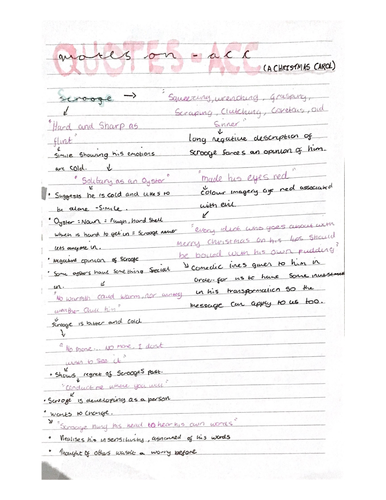 QUOTES - ACC
notes on - acc
(A CHRISTMAS CAROL)
Scrooge →
"Squeezing, wrenching, grasping,
Scraping, Clutching, Covetous, old
Sinner"
long negative description of
Scrooge Sares an opinion of him.
"Hard and Sharp as
flint"
Simile showing his emotions
are cold.
"Solitary as an Oyster"
• Suggests he is cold and likes to
be alone - Simile.
• Oyster: Noun = rough, hard shell
which is hard to get in = Scrooge never
lets anyone in.
• Negative opinion of Scrooge
• Some oysters have something Special
in.
"made his eyes red"
colour imagery age red associated
with evil.
"Every idiot who goes about with
Merry Christmas on his lips should
be boiled with his own pudding"
comedic lines given to him in
order for us to have some
in his transformation so the
message can apply to us too.
"No warmth could warm, nor wintry
weather Chill him"
Scrooge is bitter and cold
"No more... no more, I dont
want to see it"
• Shows regret of Scrooge's past.
"Conduct me where you will"
• Scrooge is developing as a person
• Wants to change.
"Scrooge hung his head to hear his own words"
• Realises his insensitivity, ashamed of his words
• Thought of others wasnt a worry before